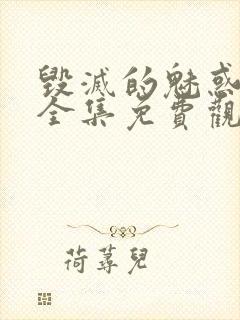 毀滅的魅惑
全集免費觀
荷蕁兒